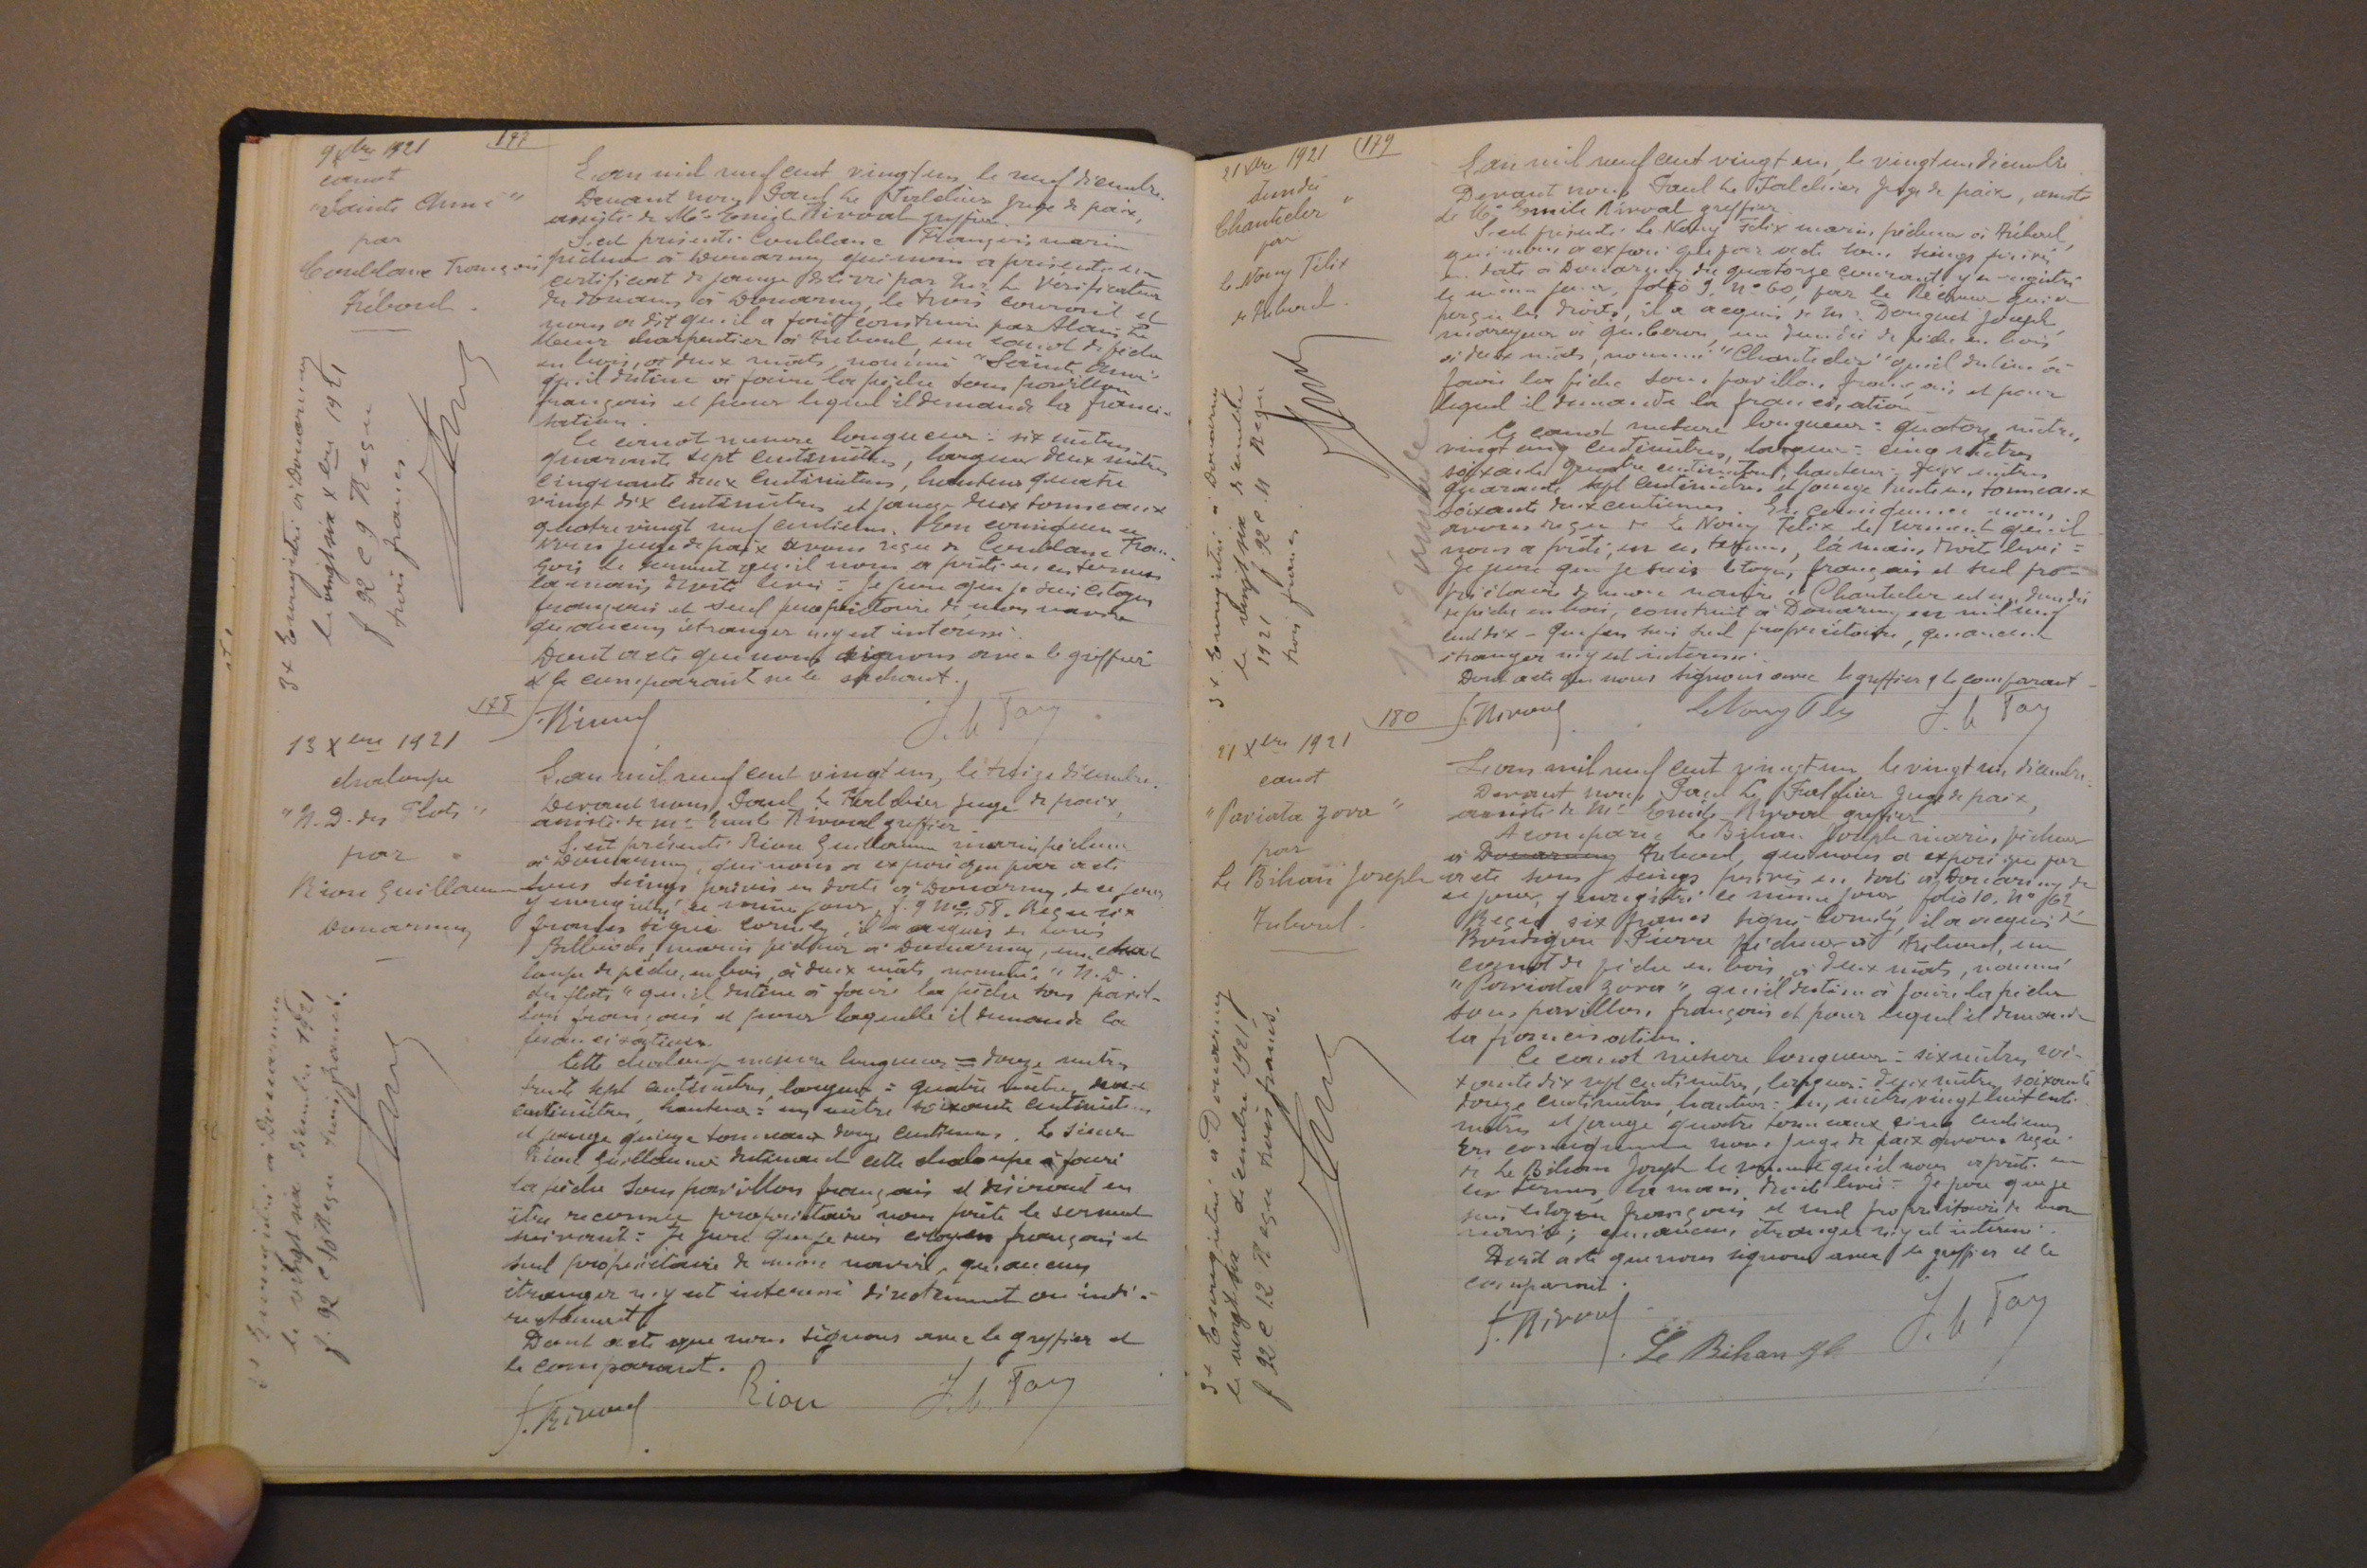 177
9 Xbre 1921
canot
"Sainte Anne"
par
Coublanc François
Tréboul.
3x Enregistré à Douarnenez
le vingt six Xbre 1921
f 92 C 9 Reçu
trois francs
L'an mil neuf cent vingt un, le neuf décembre.
Devant nous Paul Le Juge de paix,
assisté de Me Emile Rivoal greffier.
S'est présenté Coublanc François marin
pêcheur à Douarnenez qui nous a présenté un
certificat de jauge délivré par Mr le Vérificateur
des douanes à Douarnenez, le trois courant et
nous a dit qu'il a fait construire par Alain Le
charpentier à Tréboul, un canot de pêche
en bois, à deux mâts, nommé "Sainte Anne"
qu'il destine à faire la pêche sous pavillon
français et pour lequel il demande la franci-
sation.
Ce canot mesure longueur = six mètres
quarante sept centimètres, largeur deux mètres
cinquante deux centimètres, hauteur quatre
vingt dix centimètres et jauge deux tonneaux
quatre vingt neuf centièmes. En conséquence
nous juge de paix avons reçu de Coublanc Fran-
çois le serment qu'il nous a prêté en ces termes
la main droite levée = Je jure que je suis citoyen
français et seul propriétaire de mon navire
qu'aucun étranger n'y est intéressé.
Dont acte que nous signons avec le greffier
x le comparant ne le sachant.
178
13 Xbre 1921
chaloupe
"N. D. des Flots"
par
Riou Guillaume
Douarnenez
3x Enregistré à Douarnenez
le vingt six décembre 1921
f. 92 C 10 Reçu trois francs.
L'an mil neuf cent vingt un, le treize décembre.
Devant nous, Paul Le Juge de paix,
assisté de Me Emile Rivoal greffier
S'est présenté Riou Guillaume marin pêcheur
à Douarnenez, qui nous a exposé que par acte
sous seings privés en date à Douarnenez, de ce jour
y enregistré ce même jour, f. 9 No 58. Reçu six
francs signé Cornily, il a acquis de
marin pêcheur à Douarnenez, une cha-
loupe de pêche, en bois, à deux mâts, nommée "N. D.
des flots" qu'il destine à faire la pêche sous pavil-
lon français et pour laquelle il demande la
francisation.
Cette chaloupe mesure longueur = douze mètres
trente sept centimètres, largeur = quatre mètres
centimètres, hauteur = un mètre soixante centimètres
et jauge quinze tonneaux douze centièmes. Le sieur
Riou Guillaume destinant cette chaloupe à faire
la pêche sous pavillon français et désirant en
être reconnu propriétaire nous prête le serment
suivant = Je jure que je suis citoyen français et
seul propriétaire de mon navire, qu'aucun
étranger n'y est intéressé directement ou indi-
rectement
Dont acte que nous signons avec le greffier et
le comparant.
Riou
179
21 Xbre 1921
dundée
"Chantecler"
par
Le Noay Félix
de Tréboul.
3x Enregistré à Douarnenez
le vingt six décembre
1921 f 92 C. 11 Reçu
trois francs.
L'an mil neuf cent vingt un, le vingt un décembre.
Devant nous Paul Le Juge de paix, assisté
de Me Emile Rivoal greffier.
S'est présenté Le Noay Félix marin pêcheur à Tréboul,
qui nous a exposé que par acte sous seings privés
en date à Douarnenez du quatorze courant, y enregistré
le même jour, folio 9, No 60, par le Receveur qui a
perçu les droits, il a acquis de Mr Douguet Joseph,
mareyeur à Quiberon, un dundée de pêche en bois
à deux mâts, nommé "Chantecler" qu'il destine à
faire la pêche sous pavillon français et pour
lequel il demande la francisation
Ce canot mesure longueur = quatorze mètres,
vingt cinq centimètres, largeur = cinq mètres
soixante quatre centimètres, hauteur = deux mètres
quarante sept centimètres et jauge trente un tonneaux
soixante deux centièmes. En conséquence nous,
avons reçu de Le Noay Félix le serment qu'il
nous a prêté, en ces termes, la main droite levée =
Je jure que je suis citoyen français et seul pro-
priétaire de mon navire "Chantecler" est un dundée
de pêche en bois, construit à Douarnenez en mil neuf
cent dix - que j'en suis seul propriétaire, qu'aucun
étranger n'y est intéressé.
Dont acte que nous signons avec le greffier & le comparant
180
21 Xbre 1921
canot
"Pariata zora"
par
Le Bihan Joseph
Tréboul.
3x Enregistré à Douarnenez
le vingt six décembre 1921
f 92 C 12 Reçu trois francs.
L'an mil neuf cent vingt un le vingt un décembre.
Devant nous Paul Le Juge de paix,
assisté de Me Emile Rivoal greffier
A comparu Le Bihan Joseph marin pêcheur
à Douarnenez Tréboul, qui nous a exposé que par
acte sous seings privés en date à Douarnenez de
ce jour, y enregistré ce même jour folio 10. No 62
Reçu six francs signé Cornily, il a acquis de
Pierre pêcheur à Tréboul, un
canot de pêche en bois, à deux mâts, nommé
"Pariata zora" qu'il destine à faire la pêche
sous pavillon français et pour lequel il demande
la francisation.
Ce canot mesure longueur = six mètres soi-
xante dix sept centimètres, largeur = deux mètres soixante
douze centimètres, hauteur = un mètre vingt huit centi-
mètres et jauge quatre tonneaux cinq centièmes
En conséquence nous Juge de paix avons reçu
de Le Bihan Joseph le serment qu'il nous a prêté en
ces termes, la main droite levée = Je jure que je
suis citoyen français et seul propriétaire de mon
navire, qu'aucun étranger n'y est intéressé.
Dont acte que nous signons avec le greffier et le
comparant.
Le Bihan